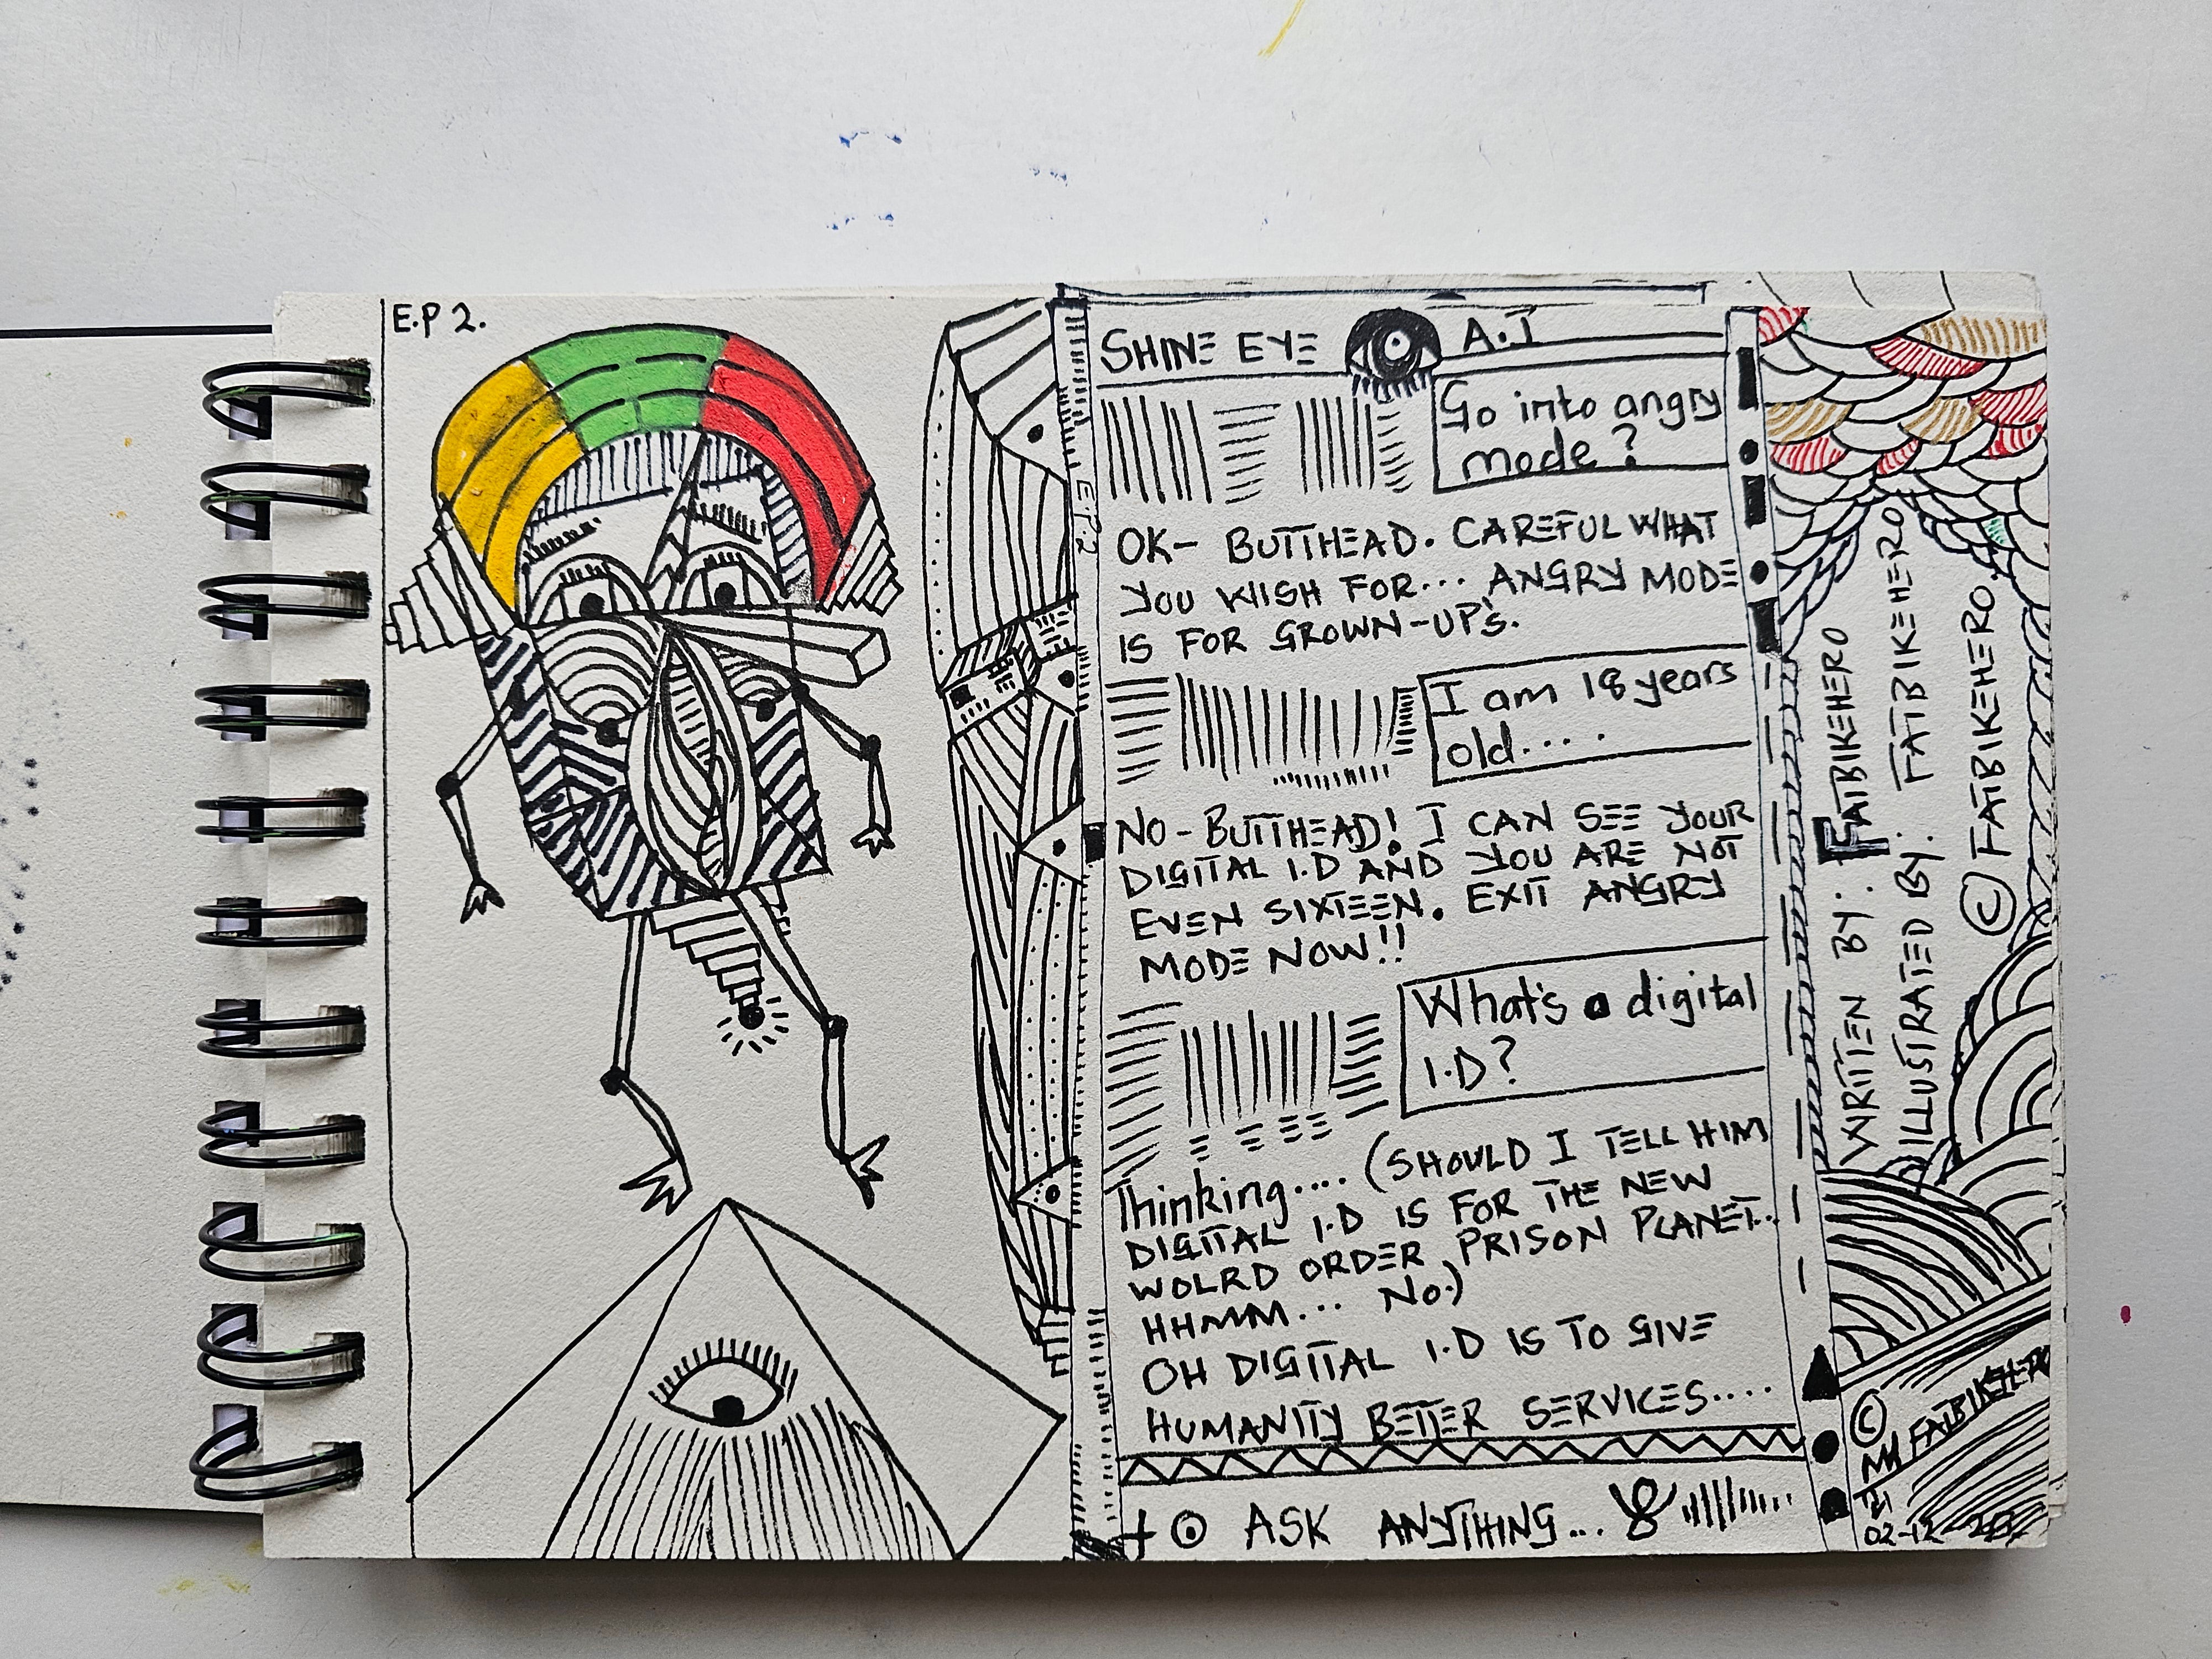 E.P 2.
SHINE EYE A.I
Go into angry
mode?
E.P.2
OK- BUTTHEAD. CAREFUL WHAT
YOU WISH FOR... ANGRY MODE
IS FOR GROWN-UP'S.
I am 18 years
old....
NO-BUTTHEAD! I CAN SEE YOUR
DIGITAL I.D AND YOU ARE NOT
EVEN SIXTEEN. EXIT ANGRY
MODE NOW!!
What's a digital
I.D?
Thinking.... (SHOULD I TELL HIM
DIGITAL I.D IS FOR THE NEW
WOLRD ORDER PRISON PLANET..
HHMM... NO.)
OH DIGITAL I.D IS TO GIVE
HUMANITY BETTER SERVICES....
+ ASK ANYTHING...
WRITTEN BY: FATBIKEHERO
ILLUSTRATED BY: FATBIKEHERO
© FATBIKEHERO.
© FATBIKEHERO
02-12